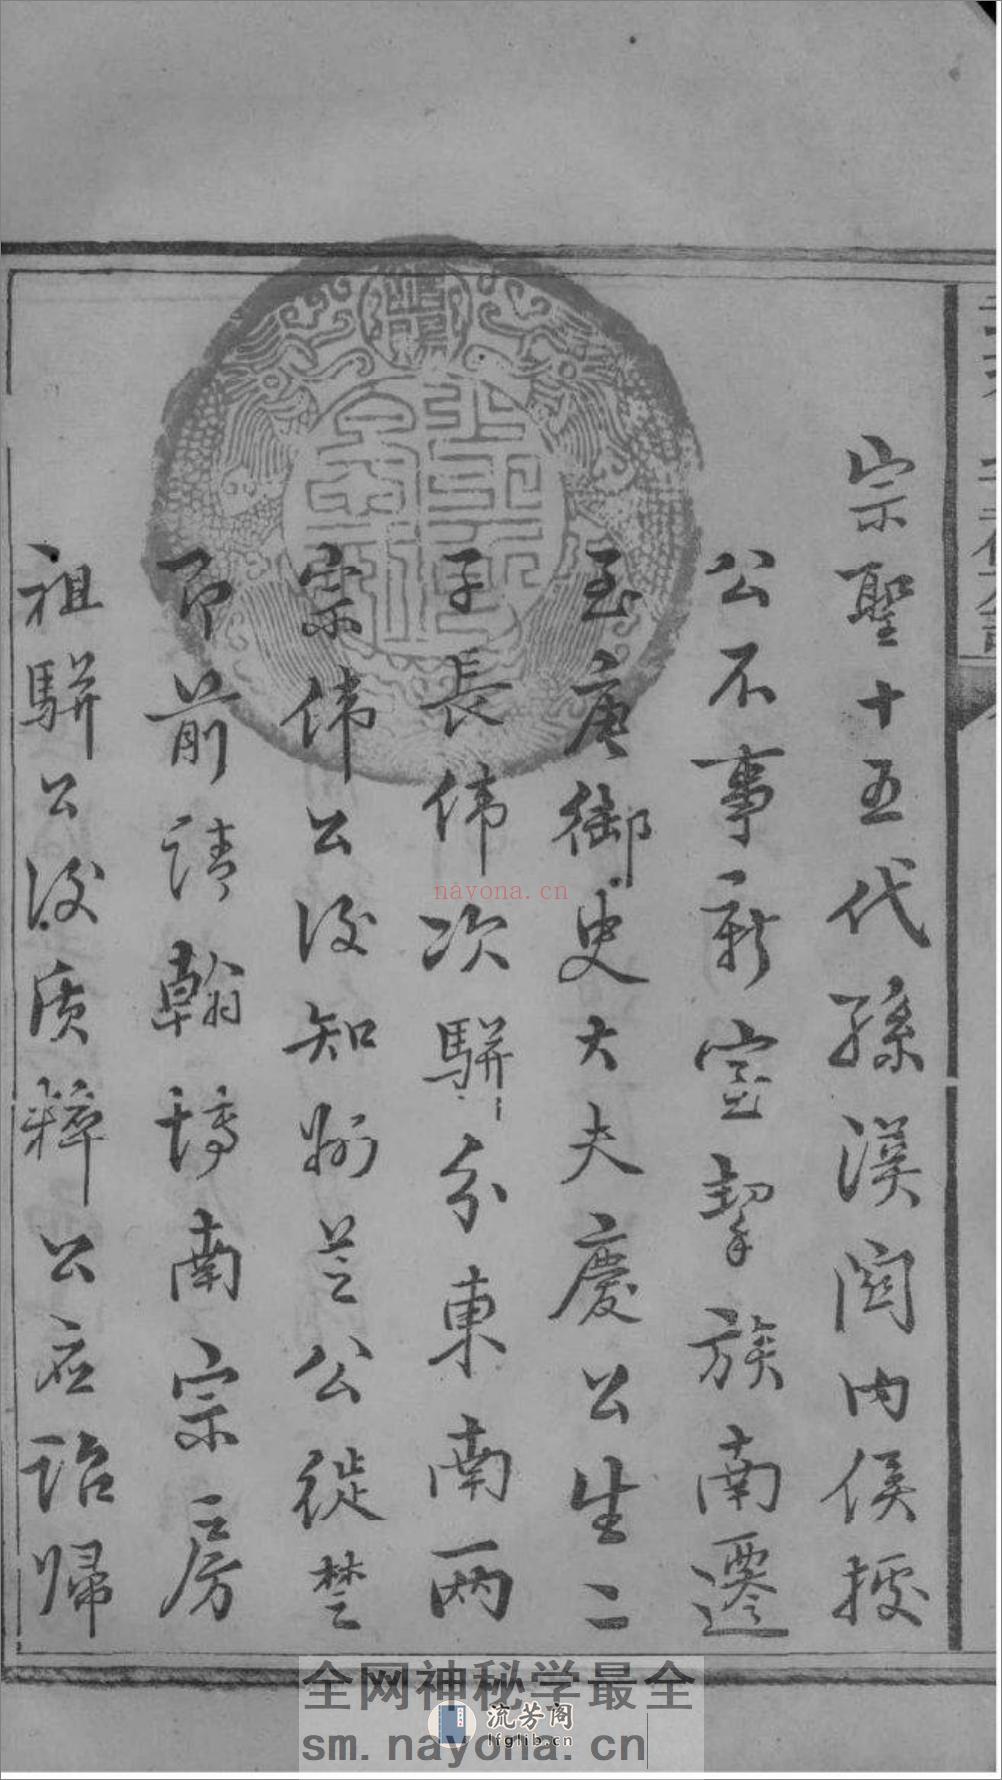 宗聖十五代孫漢關内侯據
公不事新室挈族南遷
至唐御史大夫慶公生二
子長偉次駢分東南兩
宗偉公後知州芸公徙楚
即前請翰博南宗二房
祖駢公後质粹公应詔歸
nayona.cn
全网神秘学最全
流芳阁
lfglib.cn
sm.nayona.cn